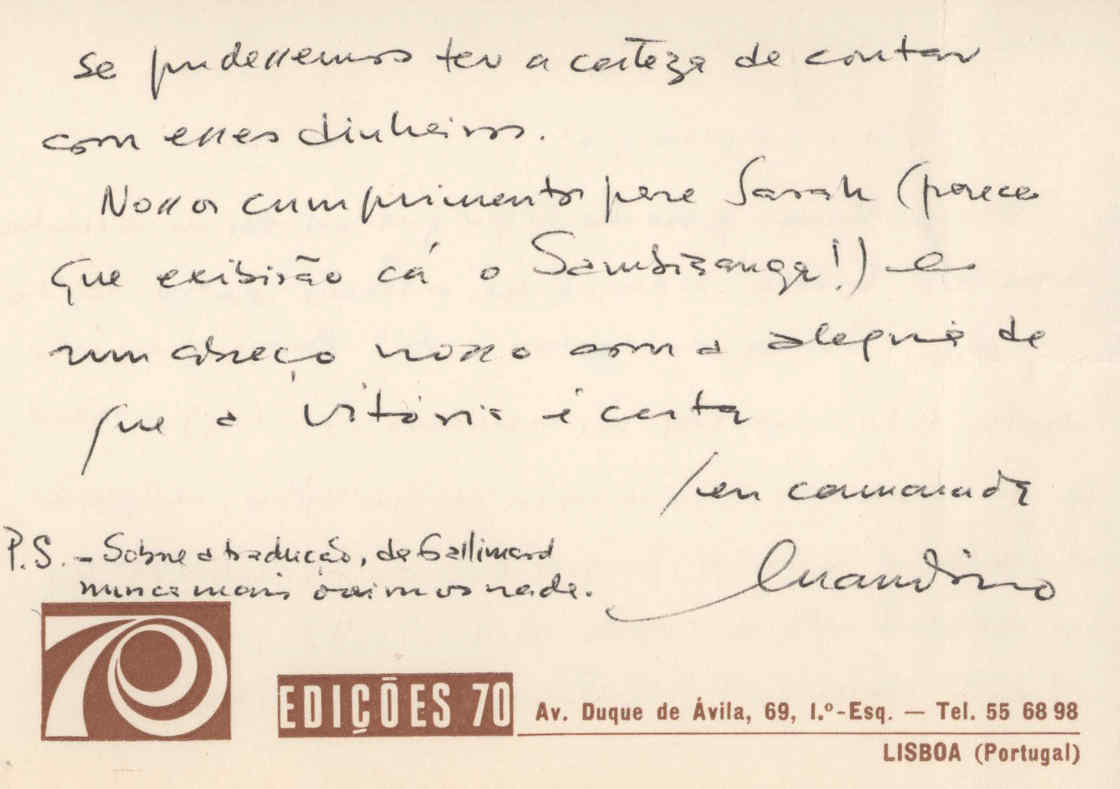 se pudessemos ter a certeza de contar
com esses dinheiros.
Nossos cumprimentos para Sarah (parece
que exibirão cá o Sambizanga!) e
um abraço nosso com a alegria de
que a vitória é certa
seu camarada
Luandino
P.S. - Sobre a tradução, da Gallimard
nunca mais ouvimos nada.
70
EDIÇÕES 70
Av. Duque de Ávila, 69, 1.º-Esq. — Tel. 55 68 98
LISBOA (Portugal)